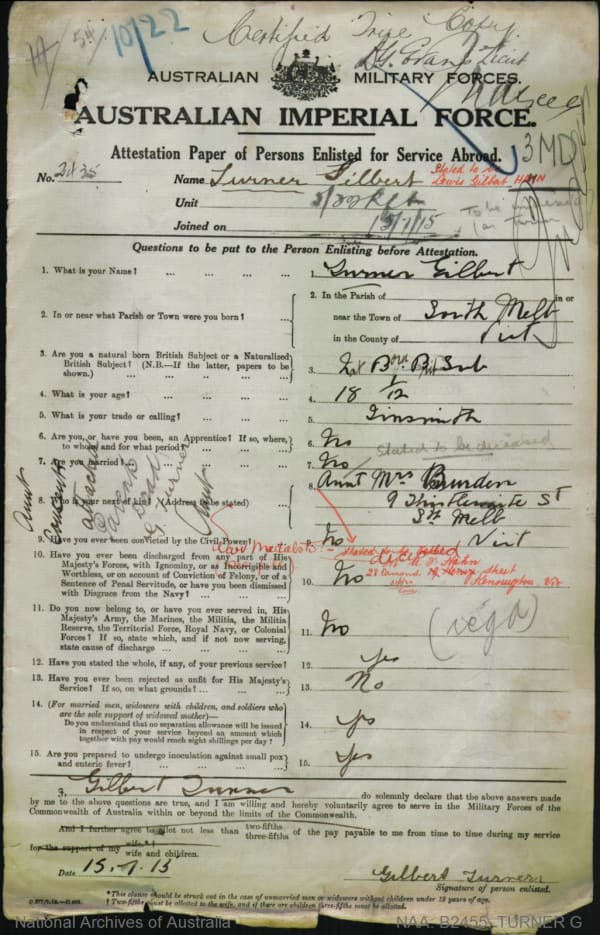 10/22
Certified True Copy
Lieut
AUSTRALIAN MILITARY FORCES.
AUSTRALIAN IMPERIAL FORCE.
3 MD
Attestation Paper of Persons Enlisted for Service Abroad.
No. 2435 Name Turner Gilbert Stated to be Lewis Gilbert HAHN
Unit
Joined on 15/7/15
Questions to be put to the Person Enlisting before Attestation.
1. What is your Name? ... ... ... 1. Turner Gilbert
2. In or near what Parish or Town were you born? ... 2. In the Parish of in or
near the Town of South Melb
in the County of Vict
3. Are you a natural born British Subject or a Naturalized British Subject? (N.B.—If the latter, papers to be shown.) ... ... 3. Nat Born Brit Sub
4. What is your age? ... ... ... 4. 18 1/12
5. What is your trade or calling? ... ... 5. Tinsmith
6. Are you, or have you been, an Apprentice? If so, where, to whom and for what period? ... ... 6. No
Stated to be deceased
7. Are you married? ... ... 7. No
8. Who is your next of kin? (Address to be stated) 8. Aunt Mrs Burdon
9 Thistlewaite St
Sth Melb
Vict
Aunt
Consent
attached
G Turner
9. Have you ever been convicted by the Civil Power? ... 9. No
10. Have you ever been discharged from any part of His Majesty's Forces, with Ignominy, or as Incorrigible and Worthless, or on account of Conviction of Felony, or of a Sentence of Penal Servitude, or have you been dismissed with Disgrace from the Navy? ... ... 10. No
Hahn
28 Ormond Street
Kensington Vic
11. Do you now belong to, or have you ever served in, His Majesty's Army, the Marines, the Militia, the Militia Reserve, the Territorial Force, Royal Navy, or Colonial Forces? If so, state which, and if not now serving, state cause of discharge ... ... 11. No
12. Have you stated the whole, if any, of your previous service? 12. yes
13. Have you ever been rejected as unfit for His Majesty's Service? If so, on what grounds? ... ... 13. No
14. (For married men, widowers with children, and soldiers who are the sole support of widowed mother)—
Do you understand that no separation allowance will be issued in respect of your service beyond an amount which together with pay would reach eight shillings per day? 14. yes
15. Are you prepared to undergo inoculation against small pox and enteric fever? ... ... 15. Yes
I, Gilbert Turner do solemnly declare that the above answers made
by me to the above questions are true, and I am willing and hereby voluntarily agree to serve in the Military Forces of the
Commonwealth of Australia within or beyond the limits of the Commonwealth.
And I further agree to allot not less than two-fifths three-fifths of the pay payable to me from time to time during my service
for the support of my wife* wife and children.
Date 15.7.15
Gilbert Turner
Signature of person enlisted.
*This clause should be struck out in the case of unmarried men or widowers without children under 18 years of age.
† Two-fifths must be allotted to the wife, and if there are children three-fifths must be allotted.
National Archives of Australia
NAA: B2455, TURNER G